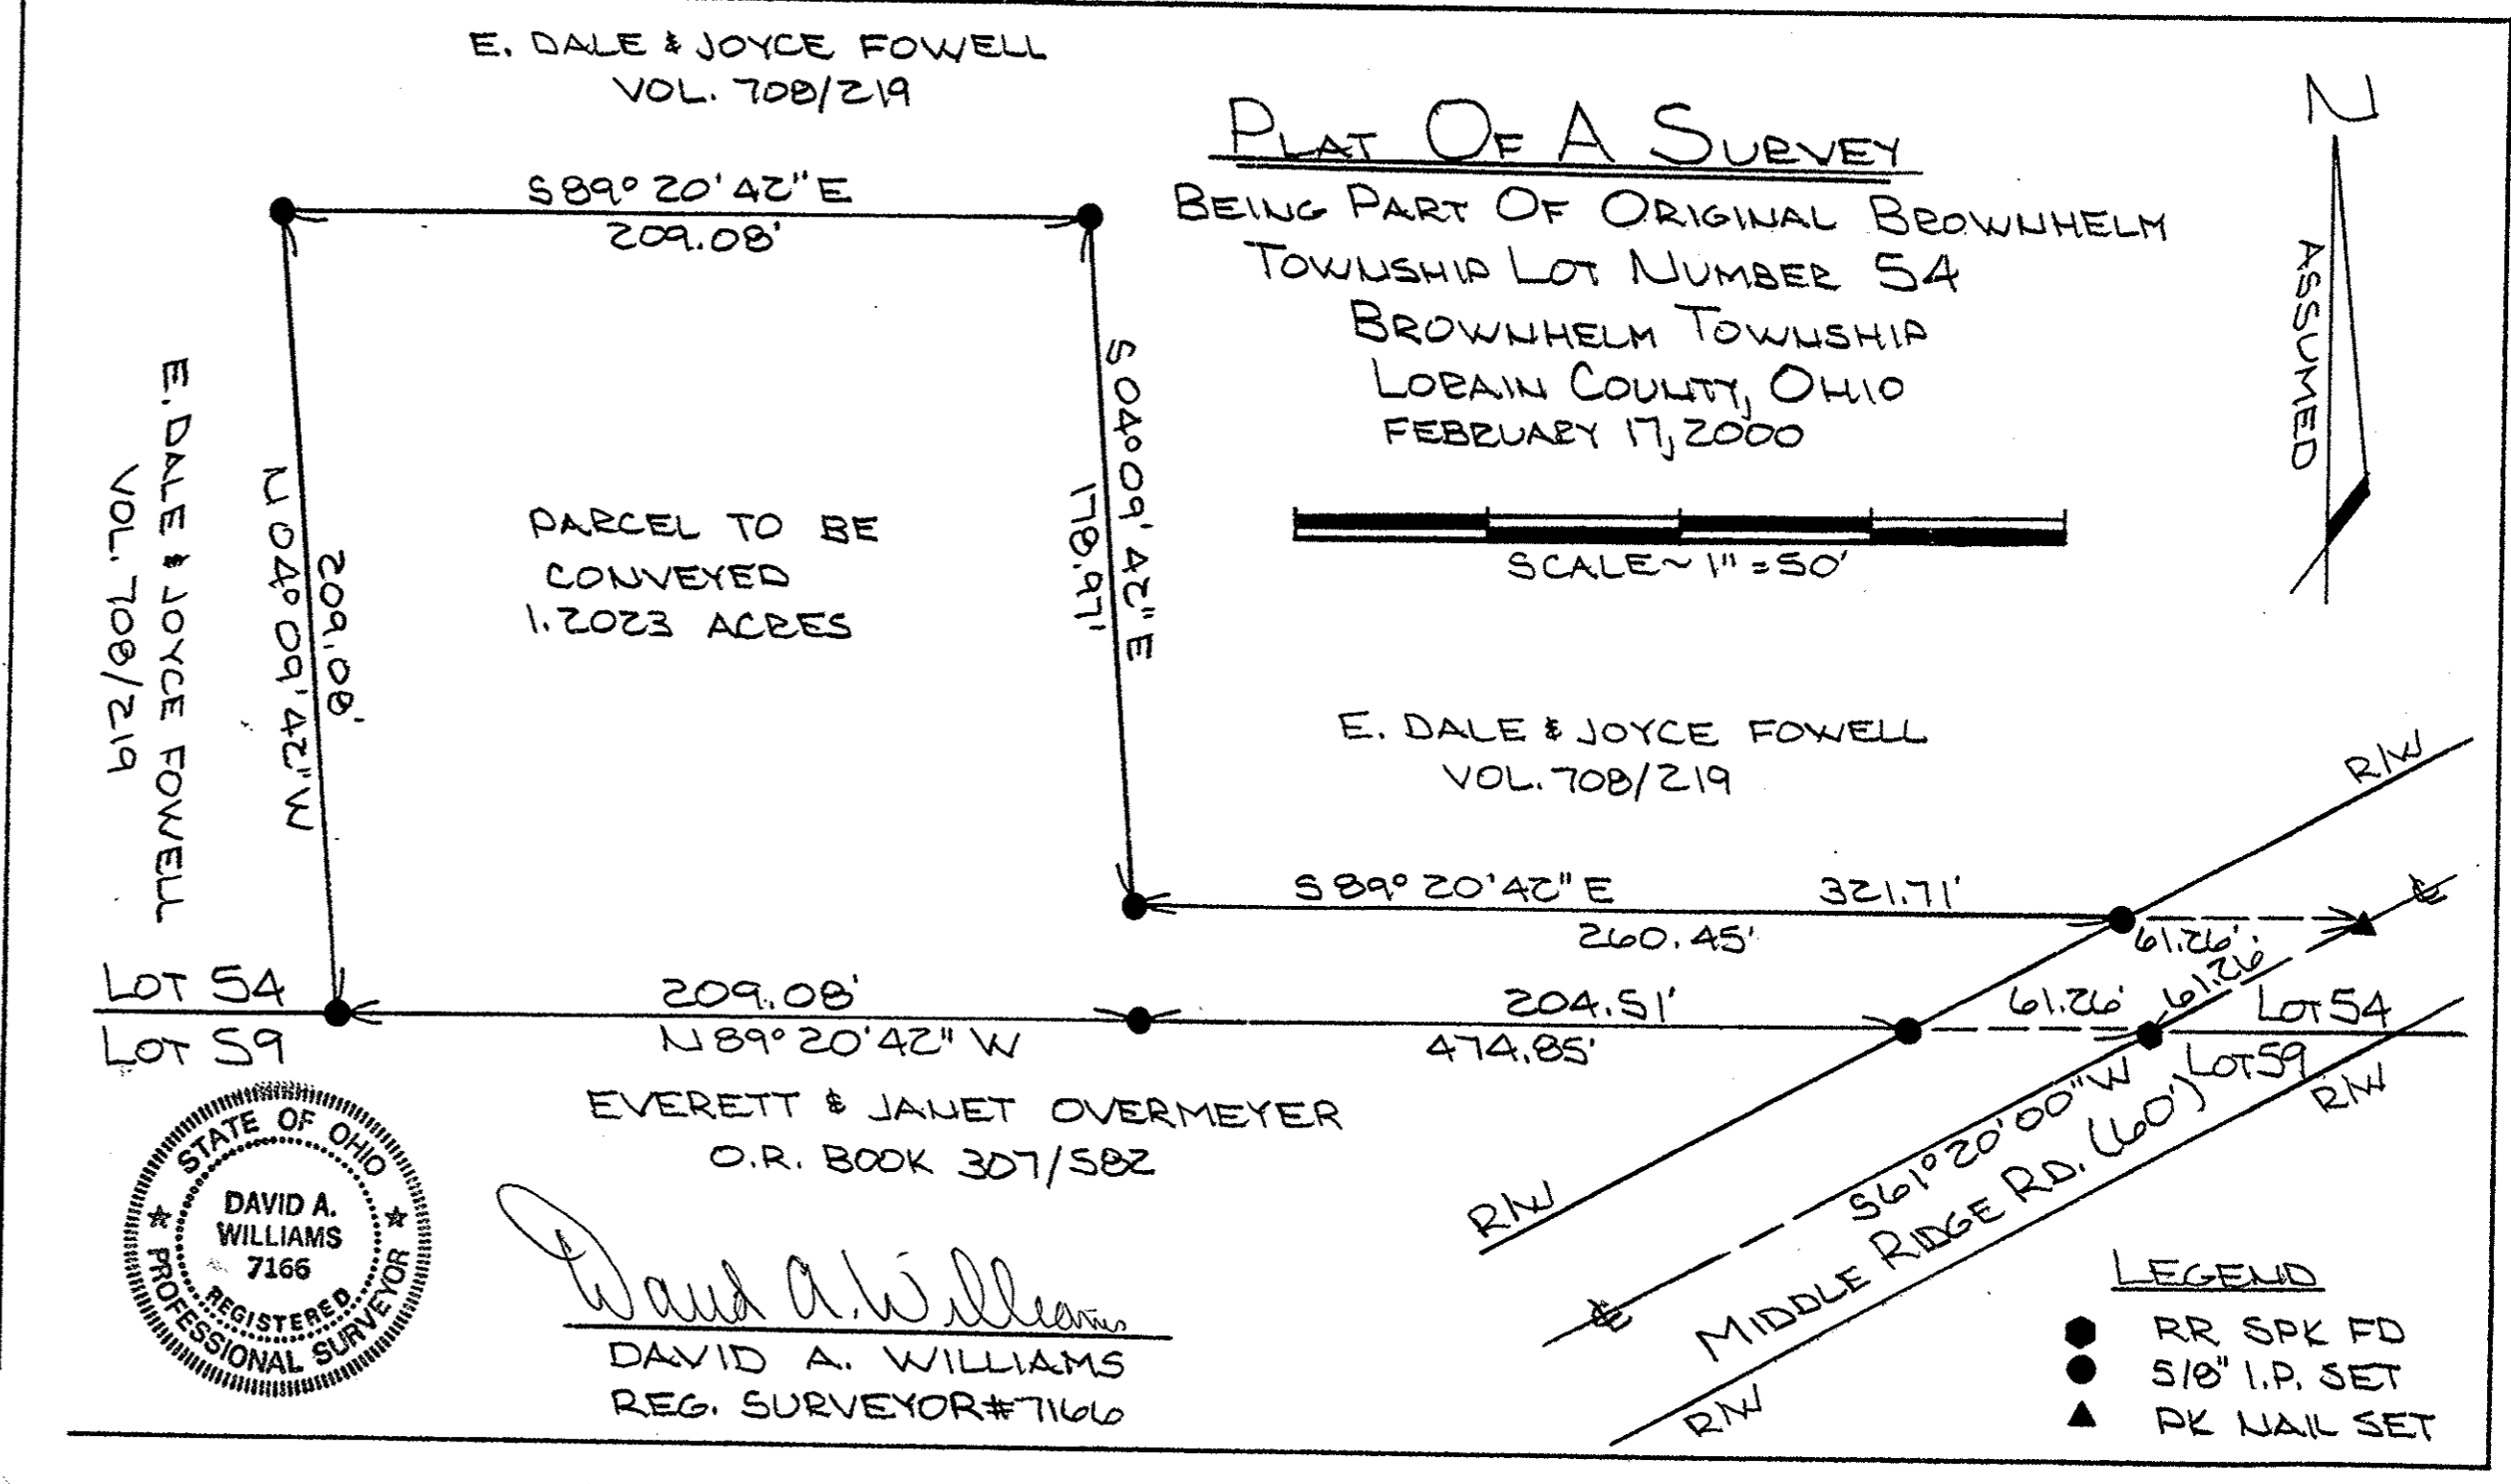 E. DALE & JOYCE FOWELL
VOL. 708/219
PLAT OF A SURVEY
BEING PART OF ORIGINAL BROWNHELM
TOWNSHIP LOT NUMBER 54
BROWNHELM TOWNSHIP
LORAIN COUNTY, OHIO
FEBRUARY 17, 2000
SCALE~ 1" = 50'
N
ASSUMED
S 89° 20' 42" E
209.08'
S 04° 09' 42" E
178.97'
N 04° 09' 42" W
209.08'
E. DALE & JOYCE FOWELL
VOL. 708/219
PARCEL TO BE
CONVEYED
1.2023 ACRES
E. DALE & JOYCE FOWELL
VOL. 708/219
R/W
S 89° 20' 42" E 321.71'
260.45'
61.26'
℄
61.26
LOT 54
LOT 59
209.08'
N 89° 20' 42" W
204.51'
474.85'
61.26'
LOT 54
LOT 59
R/W
EVERETT & JANET OVERMEYER
O.R. BOOK 307/582
R/W
S 61° 20' 00" W
MIDDLE RIDGE RD. (60')
℄
R/W
STATE OF OHIO
DAVID A.
WILLIAMS
7166
REGISTERED
PROFESSIONAL SURVEYOR
David A. Williams
DAVID A. WILLIAMS
REG. SURVEYOR #7166
LEGEND
RR SPK FD
5/8" I.P. SET
PK NAIL SET